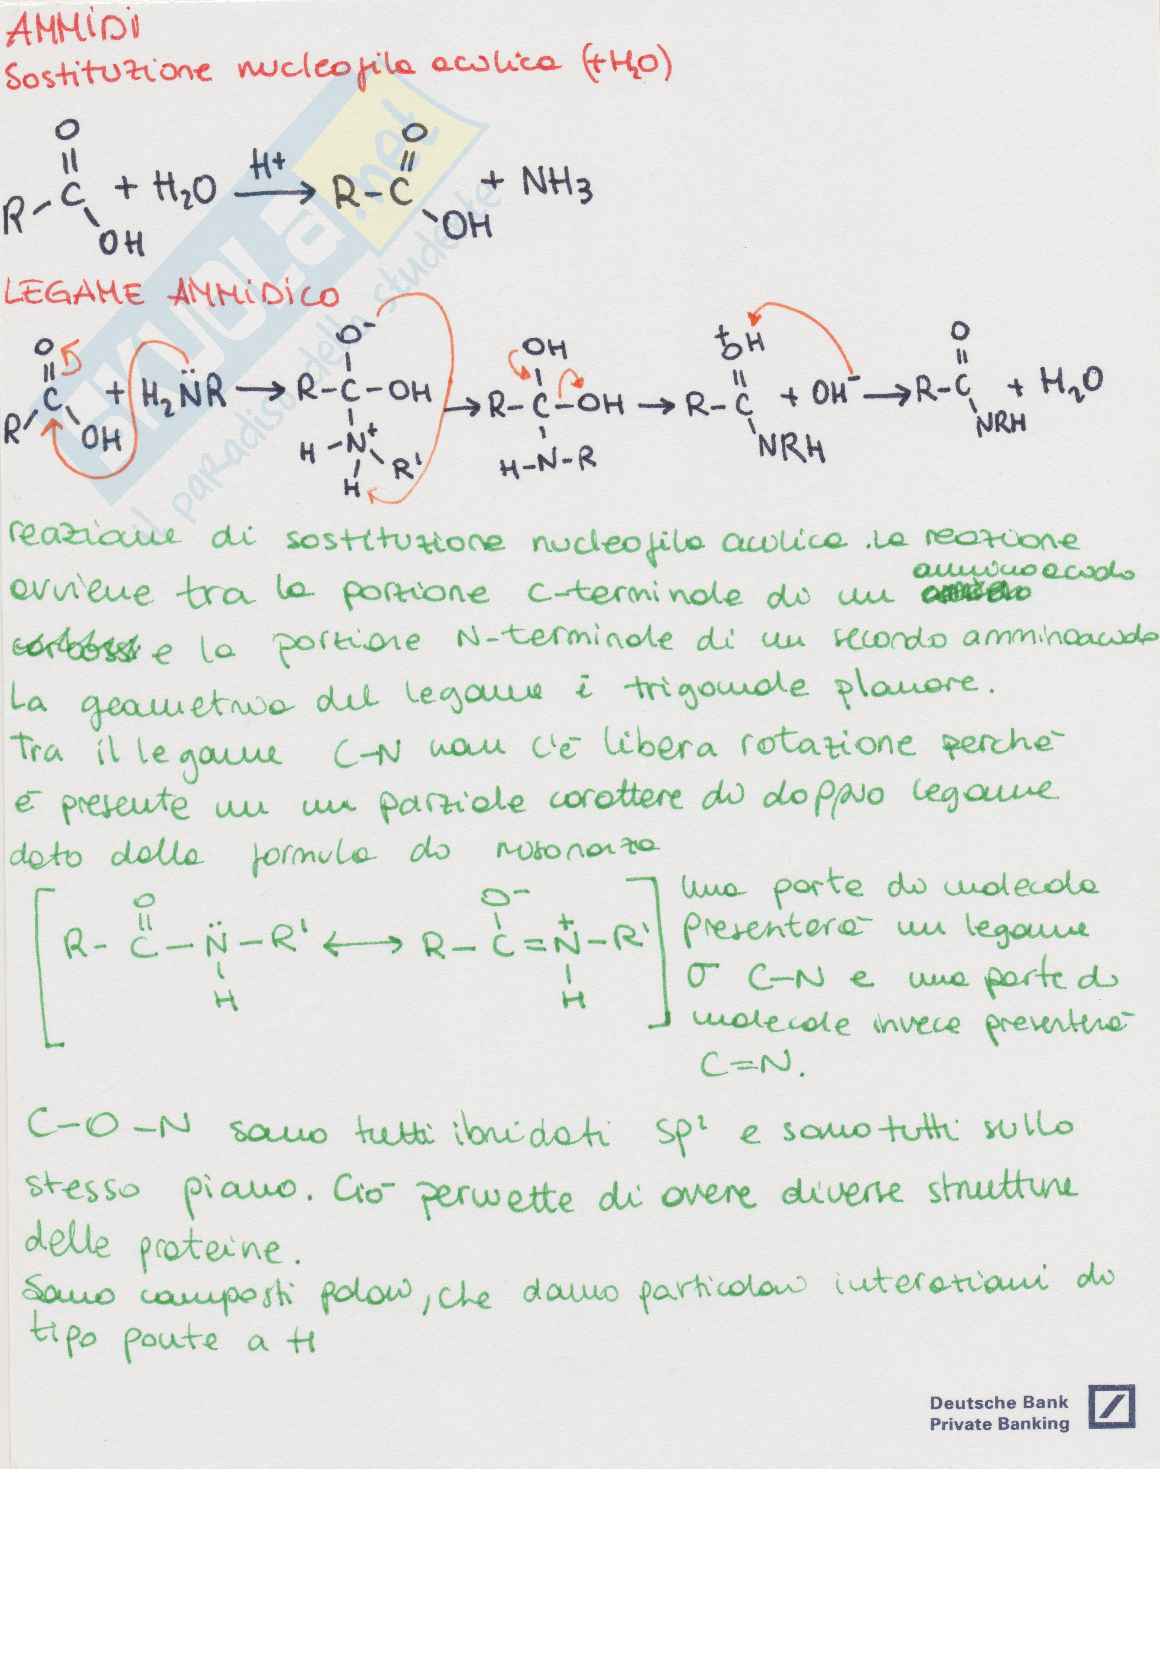 AMMIDI
Sostituzione nucleofila acilica (+H₂O)
O
R-C-OH + H₂O H⁺→ R-C-OH + NH₃
LEGAME AMMIDICO
R-C(=O)-OH + H₂N̈R → R-C(O⁻)(OH)-N⁺(H)(H)R' → R-C(OH)(OH)-N(H)-R → R-C(=⁺OH)-NRH + OH⁻ → R-C(=O)-NRH + H₂O
reazione di sostituzione nucleofila acilica. La reazione
avviene tra la porzione C-terminale di un amminoacido
e la porzione N-terminale di un secondo amminoacido
La geometria del legame è trigonale planare.
Tra il legame C-N non c'è libera rotazione perchè
è presente un un parziale carattere di doppio legame
dato dalla formula di risonanza
[R-C(=O)-N̈(H)-R' ↔ R-C(O⁻)=N⁺(H)-R']
Una parte di molecola
presenterà un legame
σ C-N e una parte di
molecole invece presenterà
C=N.
C-O-N sono tutti ibridati sp² e sono tutti sullo
stesso piano. Ciò permette di avere diverse strutture
delle proteine.
Sono composti polari, che danno particolari interazioni di
tipo ponte a H
Deutsche Bank
Private Banking
SKUOLA.net
il paradiso dello studente